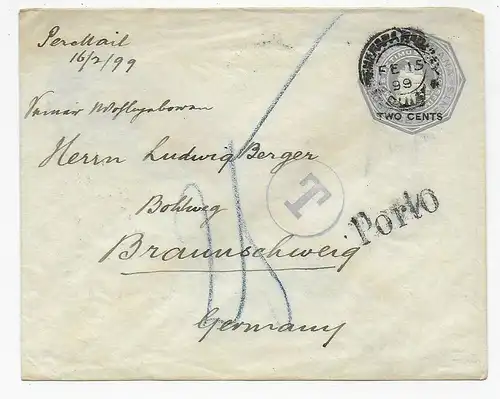 Per Mail
16/2/99
FE 15
99
TWO CENTS
Herrn Ludwig Berger
Bohlweg
Braunschweig
Germany
T
Porto